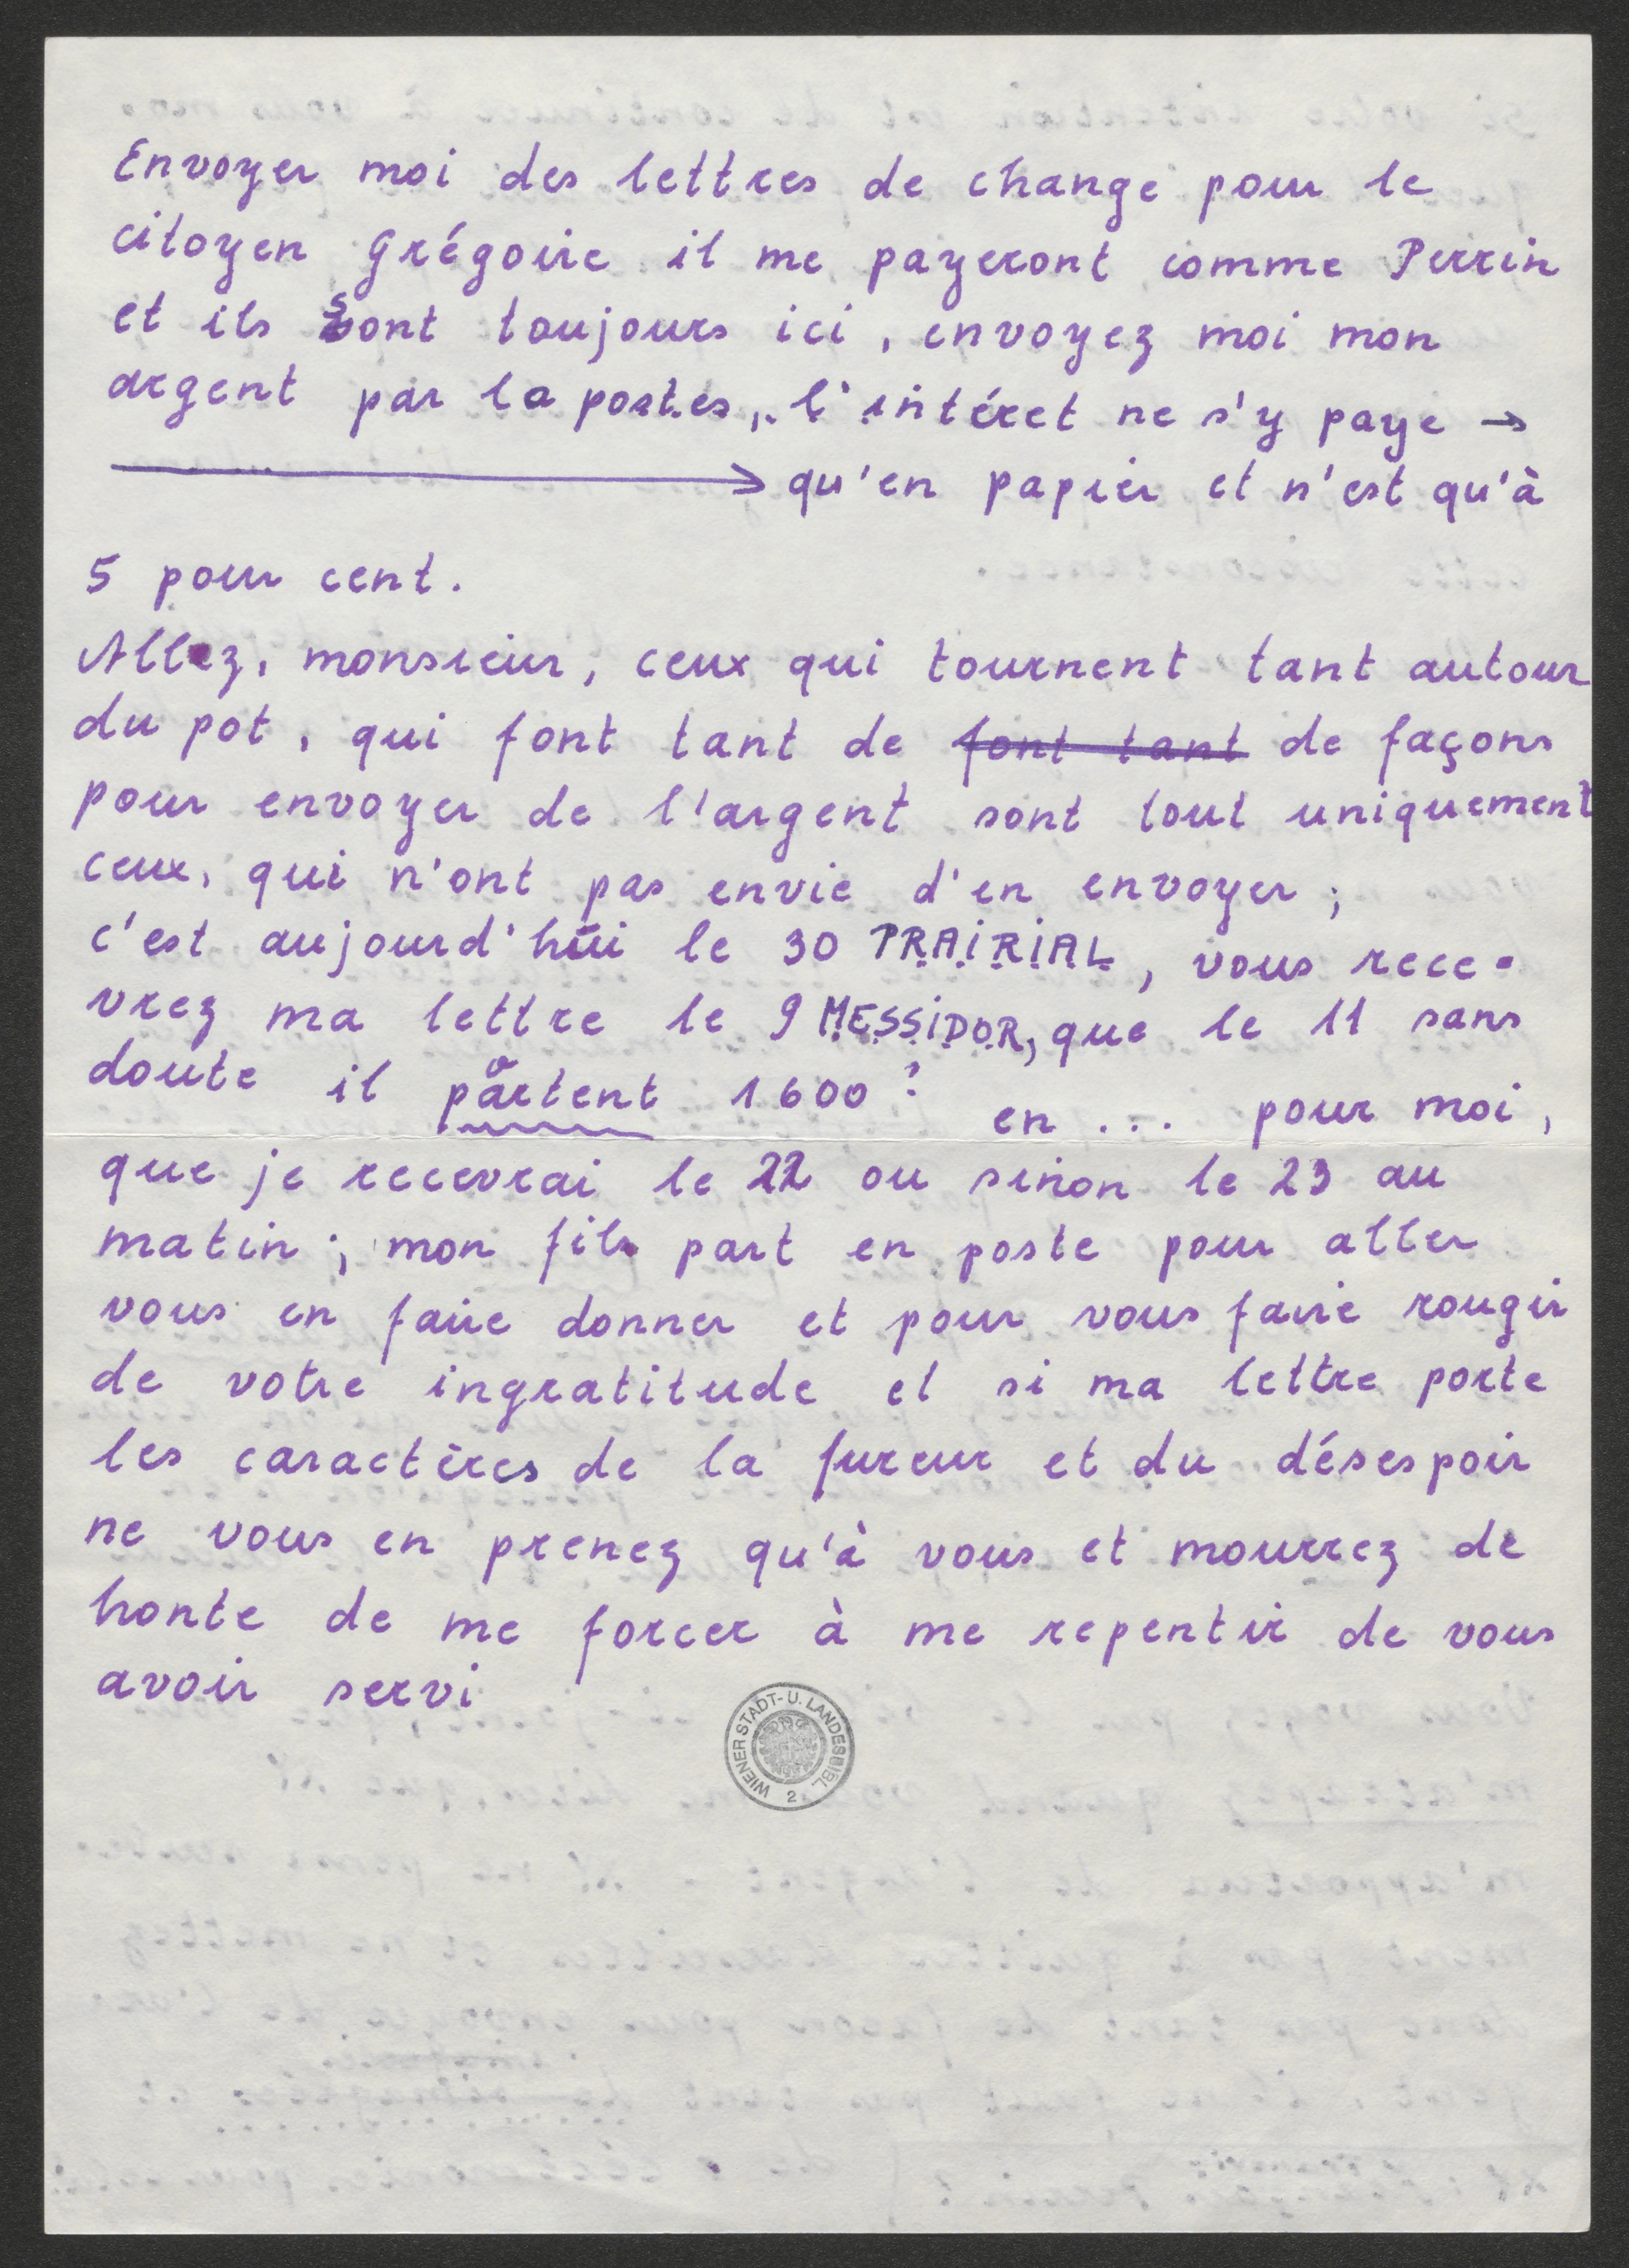 Envoyer moi des lettres de change pour le
citoyen Grégoire il me payeront comme Perrin
et ils sont toujours ici, envoyez moi mon
argent par la postes, l'intéret ne s'y paye →
→ qu'en papier et n'est qu'à
5 pour cent.
Allez, monsieur, ceux qui tournent tant autour
du pot, qui font tant de font tant de façons
pour envoyer de l'argent sont tout uniquement
ceux, qui n'ont pas envie d'en envoyer;
c'est aujourd'hui le 30 PRAiRiAL, vous rece-
vrez ma lettre le 9 MESSiDOR, que le 11 sans
doute il partent 1600? en ... pour moi,
que je recevrai le 22 ou sinon le 23 au
matin; mon fils part en poste pour aller
vous en faire donner et pour vous faire rougir
de votre ingratitude et si ma lettre porte
les caractères de la fureur et du désespoir
ne vous en prenez qu'à vous et mourrez de
honte de me forcer à me repentir de vous
avoir servi
WIENER STADT- U. LANDESBIBL.
2